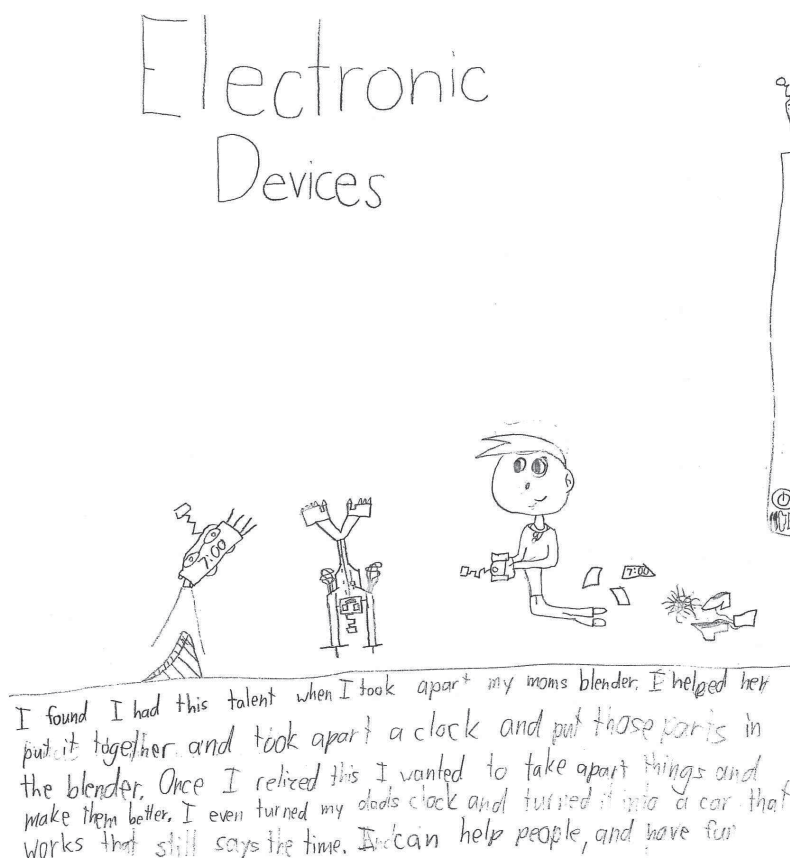 Electronic
Devices
7:00
7:00
I found I had this talent when I took apart my moms blender. I helped her
put it together and took apart a clock and put those parts in
the blender. Once I relized this I wanted to take apart things and
make them better. I even turned my dads clock and turned it into a car that
works that still says the time. I can help people, and have fun